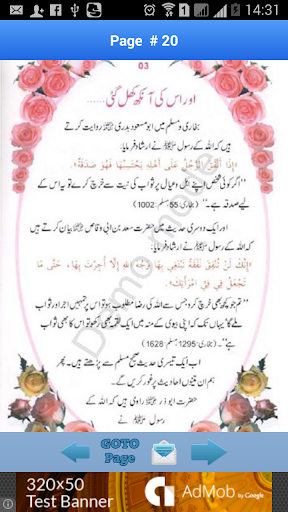 14:31
Page # 20
03
اور اس کی آنکھ کھل گئی......
بخاری و مسلم میں ابو مسعود بدری روایت کرتے
ہیں کہ اللہ کے رسول ﷺ نے ارشاد فرمایا:
«إِذَا أَنْفَقَ الرَّجُلُ عَلَى أَهْلِهِ يَحْتَسِبُهَا فَهُوَ صَدَقَةٌ»
"اگر کوئی شخص اپنے اہل و عیال پر ثواب کی نیت سے خرچ کرے تو یہ اس کے
لیے صدقہ ہے۔" (بخاری: 55، مسلم: 1002)
اور ایک دوسری حدیث میں حضرت سعد بن ابی وقاص بیان کرتے ہیں
کہ اللہ کے رسول ﷺ نے ارشاد فرمایا:
«إِنَّكَ لَنْ تُنْفِقَ نَفَقَةً تَبْتَغِي بِهَا وَجْهَ اللهِ إِلَّا أُجِرْتَ بِهَا، حَتَّى مَا
تَجْعَلُ فِي فِيِّ امْرَأَتِكَ»
"تم جو کچھ بھی خرچ کرو جس سے اللہ کی رضا مطلوب ہو تو اس پر تمہیں اجر اور ثواب
ملے گا، یہاں تک کہ اپنی بیوی کے منہ میں ایک لقمہ بھی رکھو تو اس کا بھی ثواب
ہے۔" (بخاری: 1295، مسلم: 1628)
اب ایک تیسری حدیث صحیح مسلم سے پڑھتے ہیں۔ پھر
ہم ان تینوں احادیث پر غور کریں گے۔
حضرت ابو ذر راوی ہیں کہ اللہ کے
رسول ﷺ نے
Demo mode
GOTO
Page
320x50
Test Banner
AdMob by Google